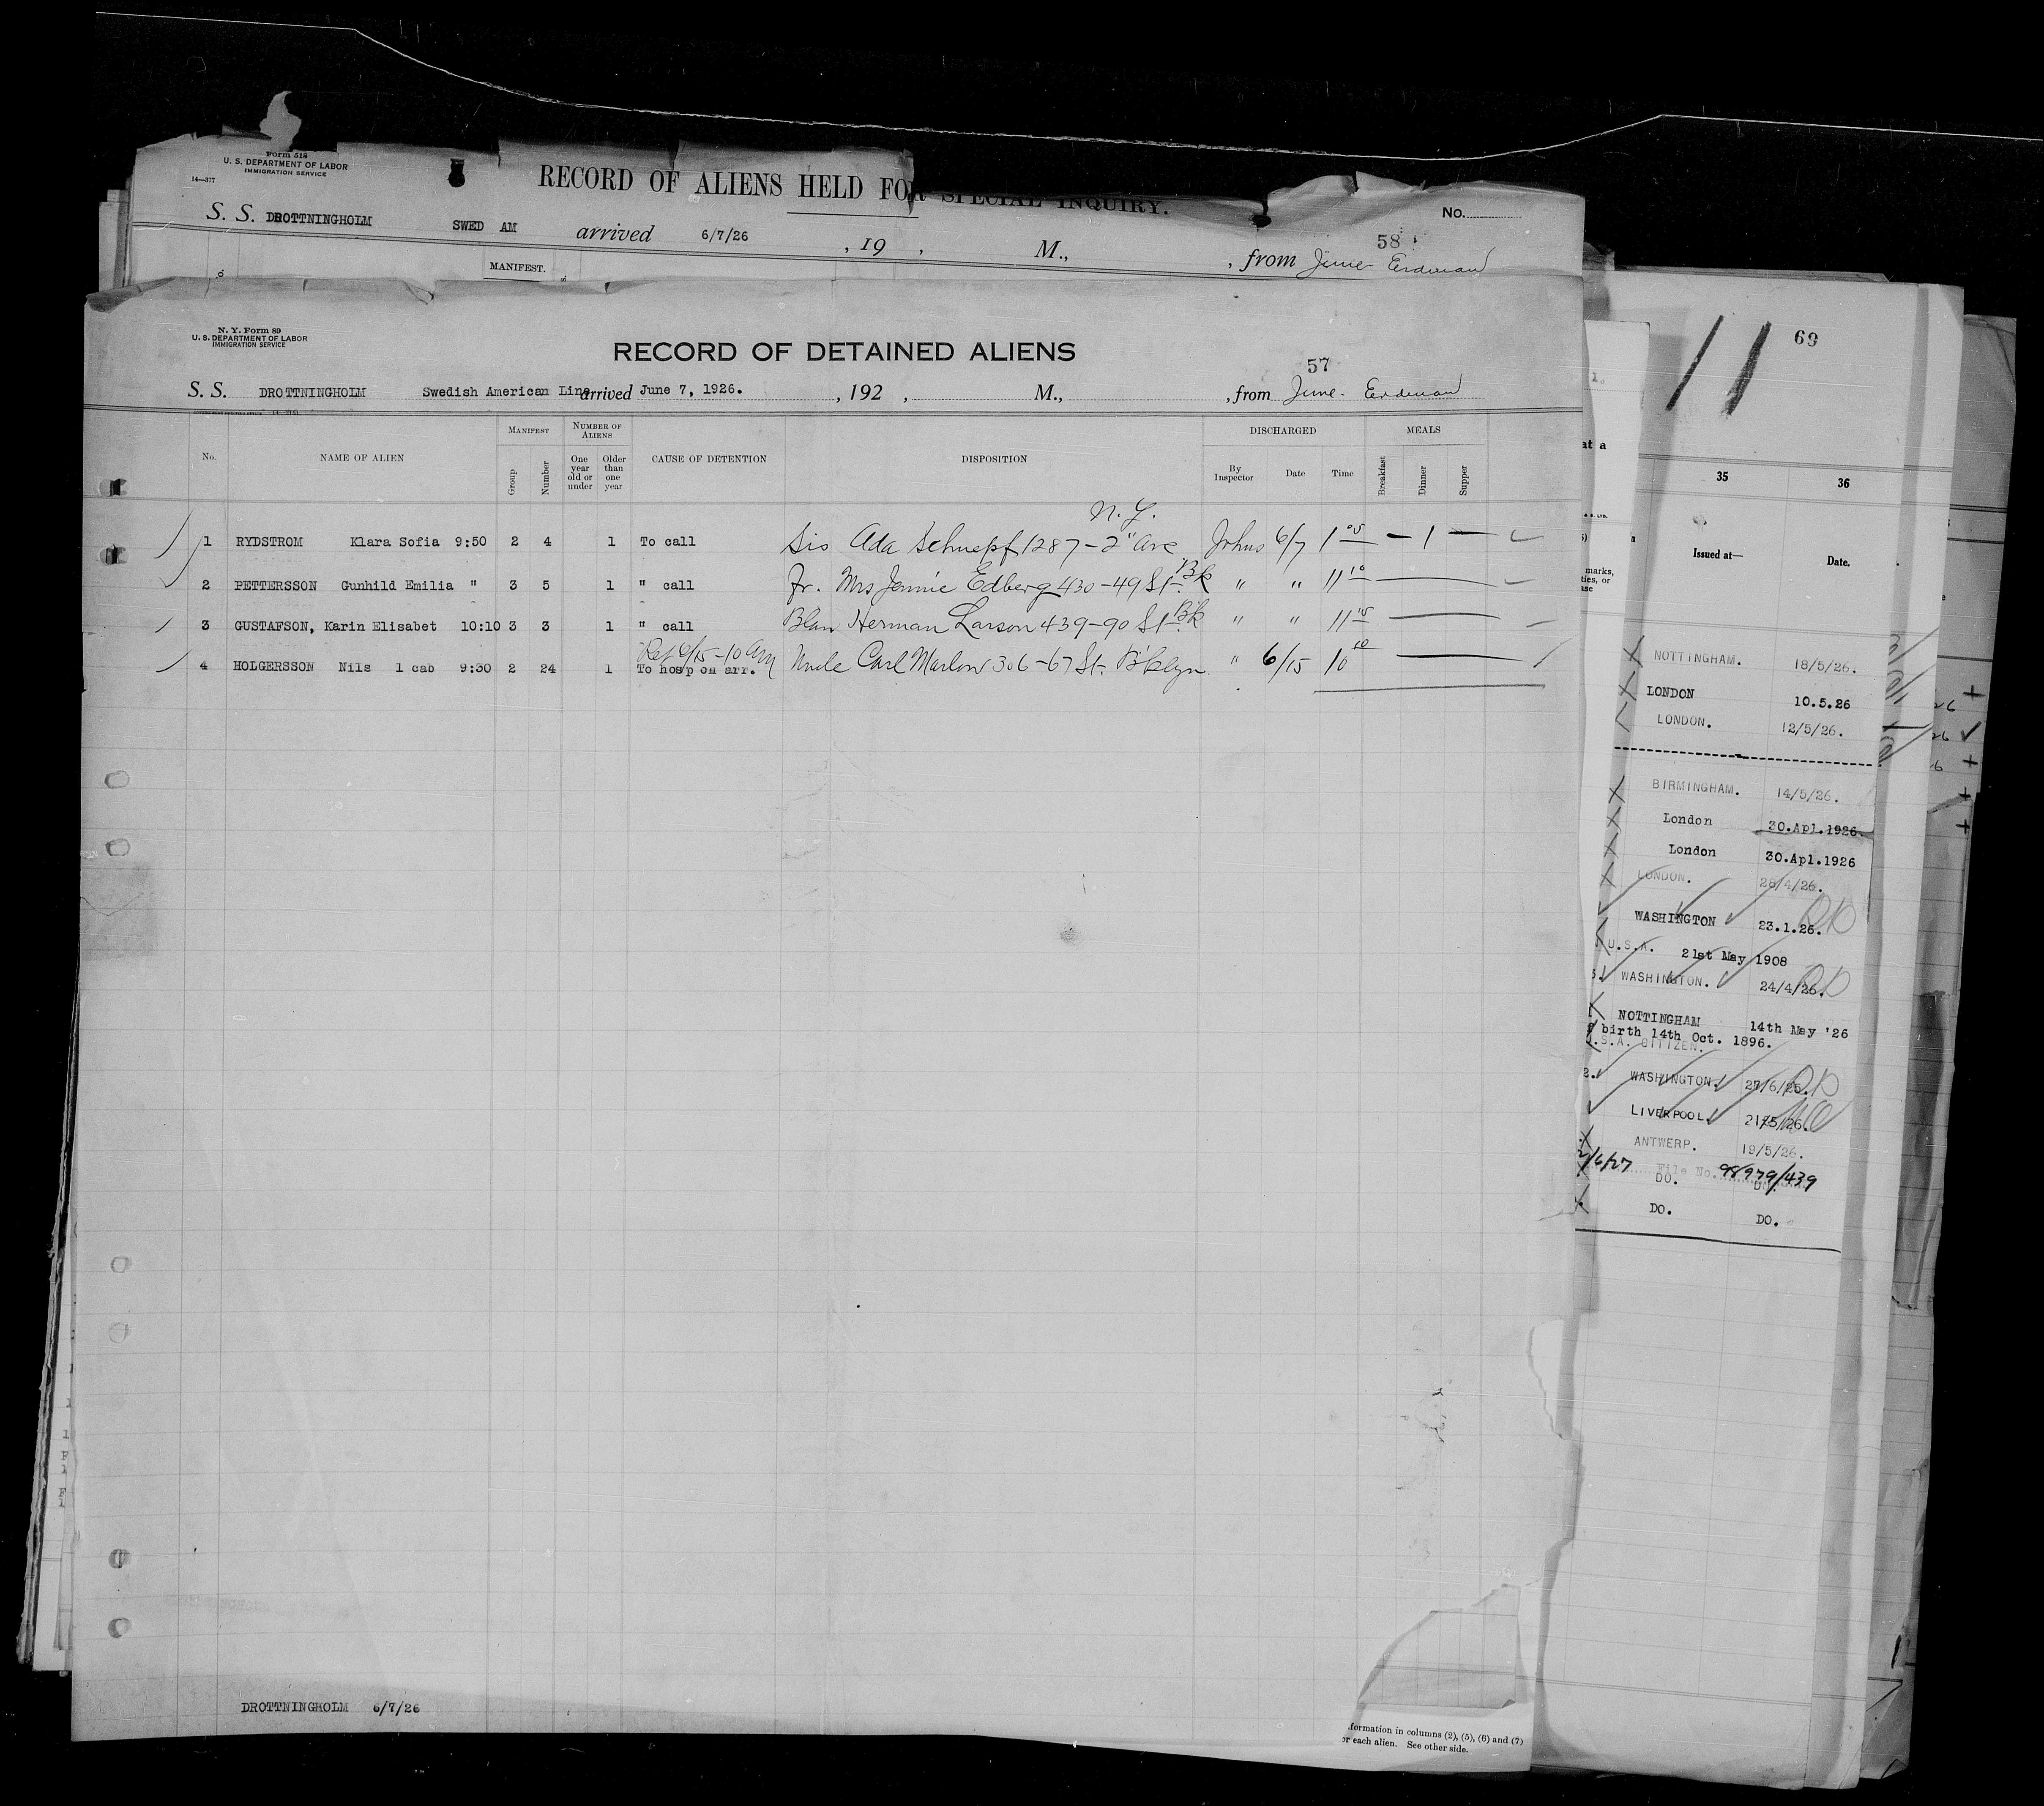 Form 518
U. S. DEPARTMENT OF LABOR
IMMIGRATION SERVICE
14—377
RECORD OF ALIENS HELD FOR SPECIAL INQUIRY.
No.
S. S. DROTTNINGHOLM SWED AM arrived 6/7/26 , 19 , M., , from June Erdman
58
MANIFEST.
N. Y. Form 89
U. S. DEPARTMENT OF LABOR
IMMIGRATION SERVICE
RECORD OF DETAINED ALIENS
57
S. S. DROTTNINGHOLM Swedish American Line arrived June 7, 1926. , 192 , M., , from June. Erdman
No. NAME OF ALIEN MANIFEST NUMBER OF ALIENS CAUSE OF DETENTION DISPOSITION DISCHARGED MEALS
Group Number One year old or under Older than one year By Inspector Date Time Breakfast Dinner Supper
N. Y.
1 RYDSTROM Klara Sofia 9:50 2 4 1 To call Sis Ada Schnepf 1287-2" Ave Johns 6/7 1 05 — 1 —
2 PETTERSSON Gunhild Emilia " 3 5 1 " call Fr. Mrs Jennie Edberg 430-49 St. Bk " " 11 10
3 GUSTAFSON, Karin Elisabet 10:10 3 3 1 " call Herman Larson 439-90 St. Bk " " 11 15
Rej 6/15-10 AM
4 HOLGERSSON Nils 1 cab 9:30 2 24 1 To hosp on arr. Uncle Carl Marlow 306-67 St. B'klyn " 6/15 10 10
DROTTNINGHOLM 6/7/26
formation in columns (2), (5), (6) and (7)
or each alien. See other side.
11
69
at a
35 36
marks,
ties, or
Issued at— Date.
NOTTINGHAM. 18/5/26.
LONDON 10.5.26
LONDON. 12/5/26.
BIRMINGHAM. 14/5/26.
London 30.Apl.1926.
London 30.Apl.1926
LONDON. 28/4/26.
WASHINGTON 23.1.26.
U.S.A. 21st May 1908
WASHINGTON. 24/4/26.
NOTTINGHAM 14th May '26
birth 14th Oct. 1896.
U.S.A. CITIZEN.
2. WASHINGTON. 27/6/25.
LIVERPOOL. 21/5/26.
ANTWERP. 19/5/26.
2/6/27 File No. 98979/439
DO. DO.
DO. DO.